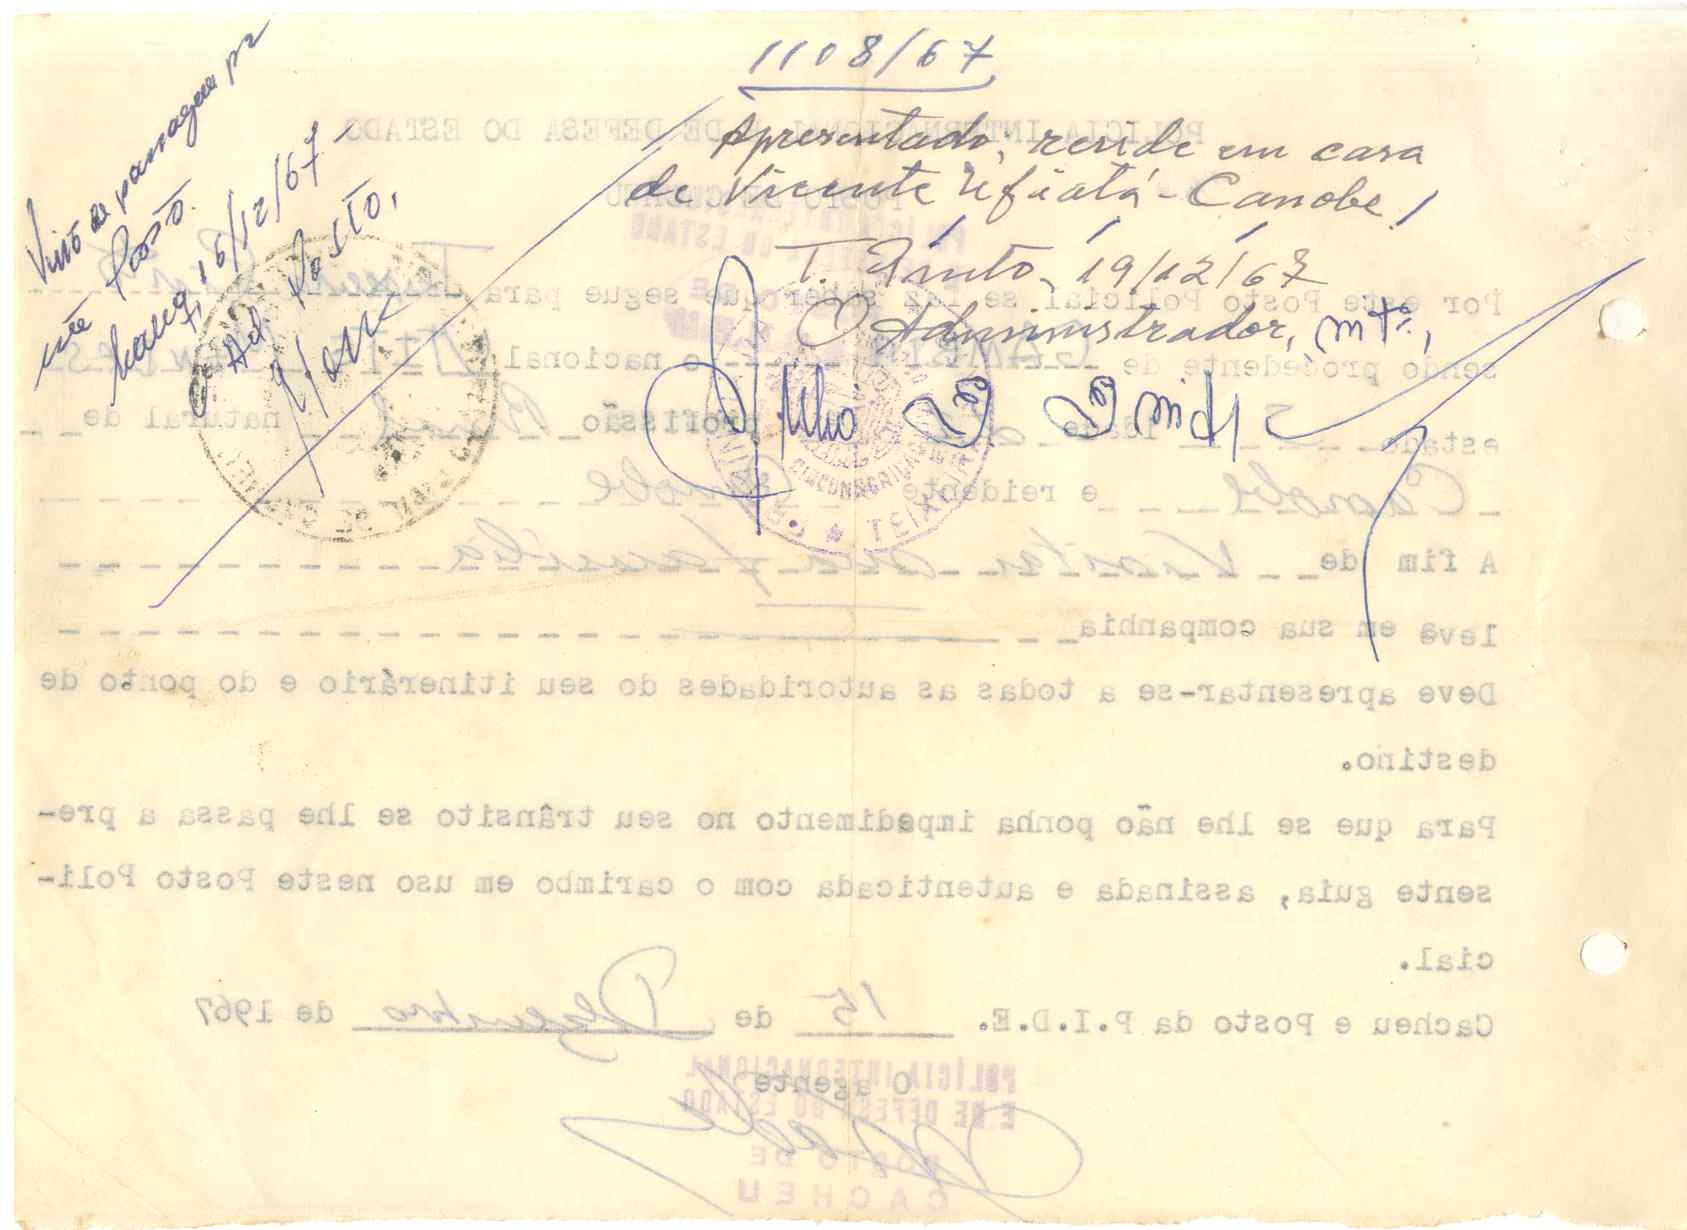 1108/67
Apresentado; reside em casa
de Vicente - Canobe!
T. Pinto, 19/12/67
O Administrador, mtº.,
Visto de passagem pr
este Posto.
16/12/67 -
O Ad. Posto,
POLICIA INTERNACIONAL E DE DEFESA DO ESTADO
POSTO DE CACHEU
Por este Posto Policial se faz saber que segue para Teixeira Pinto
sendo procedente de GAMBIA o nacional
estado S idade profissão natural de
Canobe e reidente Canobe
A fim de Visitar sua familia
leva em sua companhia
Deve apresentar-se a todas as autoridades do seu itinerário e do ponto de
destino.
Para que se lhe não ponha impedimento no seu trânsito se lhe passa a pre-
sente guia, assinada e autenticada com o carimbo em uso neste Posto Poli-
cial.
Cacheu e Posto da P.I.D.E. 15 de Dezembro de 1967
O agente
POLÍCIA INTERNACIONAL
E DE DEFESA DO ESTADO
POSTO DE
CACHEU